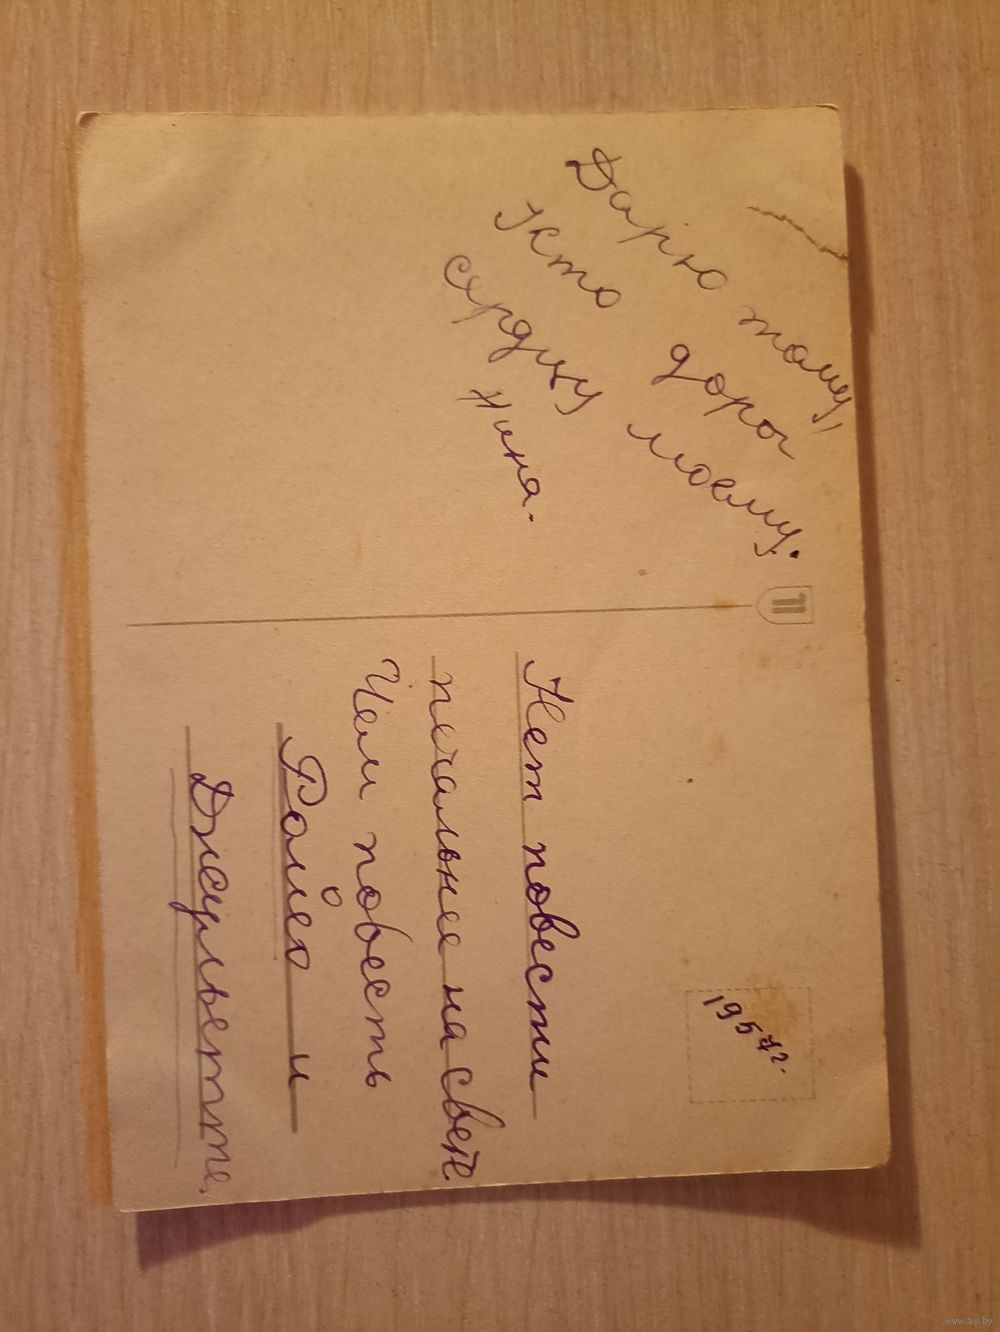 Дарю тому,
кто дорог
сердцу моему.
Нина.
1957г.
Нет повести
печальнее на свете.
Чем повесть
о
Ромео и
Джульетте.
www.ay.by